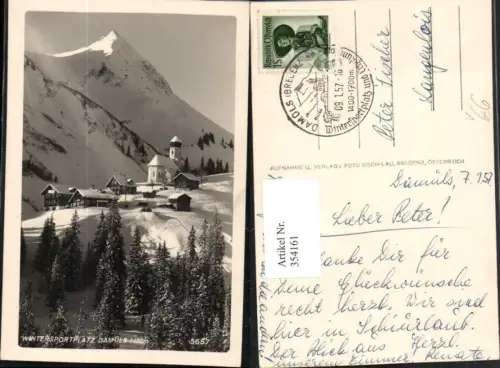 WINTERSPORTPLATZ DAMÜLS
5657
Republik Österreich
DAMÜLS (BREGENZ
09.1.57
1400-1700m
Wintersportplatz und
Peter Fischer
Langenlois
AUFNAHME U. VERLAG: FOTO RISCH-LAU, BREGENZ, ÖSTERREICH
Damüls, 7.1.57
Lieber Peter!
Artikel Nr.
354161
danke Dir für
Deine Glückwünsche
recht herzl. Wir sind
hier in Schiurlaub.
Der Blick aus
unserem Zimmer Renate